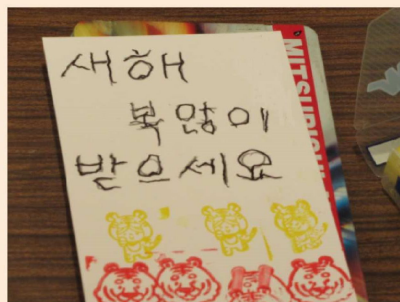 새해
복많이
받으세요
MITSUBISHI